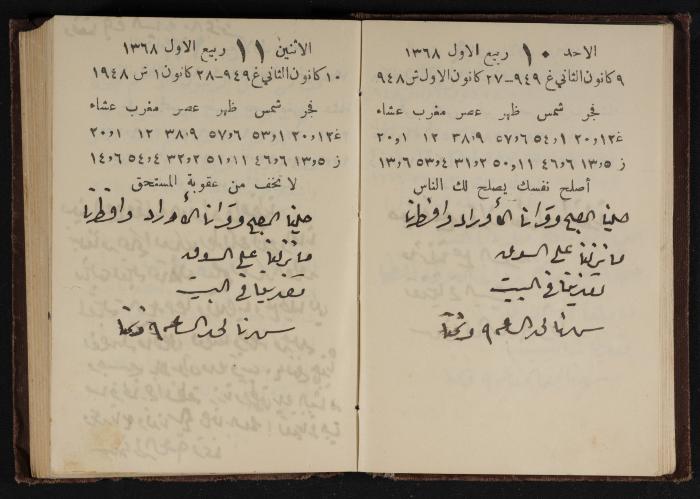 الاحد ١٠ ربيع الاول ١٣٦٨
٩ كانون الثاني غ ٩٤٩ــ٢٧ كانون الاول ش ٩٤٨
فجر شمس ظهر عصر مغرب عشاء
غ ١٢,٢٠ ١,٥٤ ٦,٥٧ ٩,٣٨ ١٢ ١,٢٠
ز ٥,١٣ ٦,٤٦ ١١,٥٠ ٢,٣١ ٤,٥٣ ٦,١٣
أصلح نفسك يصلح لك الناس
صلينا الصبح وقرانا الأوراد وافطرنا
ما نزلنا على السوق
تغدينا في البيت
سهرنا لحد الساعه ٩ ونمنا
الاثنين ١١ ربيع الاول ١٣٦٨
١٠ كانون الثاني غ ٩٤٩ــ٢٨ كانون ١ ش ١٩٤٨
فجر شمس ظهر عصر مغرب عشاء
غ ١٢,٢٠ ١,٥٣ ٦,٥٧ ٩,٣٨ ١٢ ١,٢٠
ز ٥,١٣ ٦,٤٦ ١١,٥١ ٢,٣٢ ٤,٥٤ ٦,١٤
لا تخف من عقوبة المستحق
صلينا الصبح وقرانا الأوراد وافطرنا
ما نزلنا على السوق
تغدينا في البيت
سهرنا لحد الساعه ٩ ونمنا